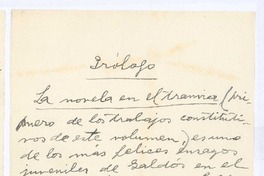 Prólogo
La novela en el tranvía (pri-
mero de los trabajos constituti-
vos de este volumen) es uno
de los más felices ensayos
juveniles de Galdós en el